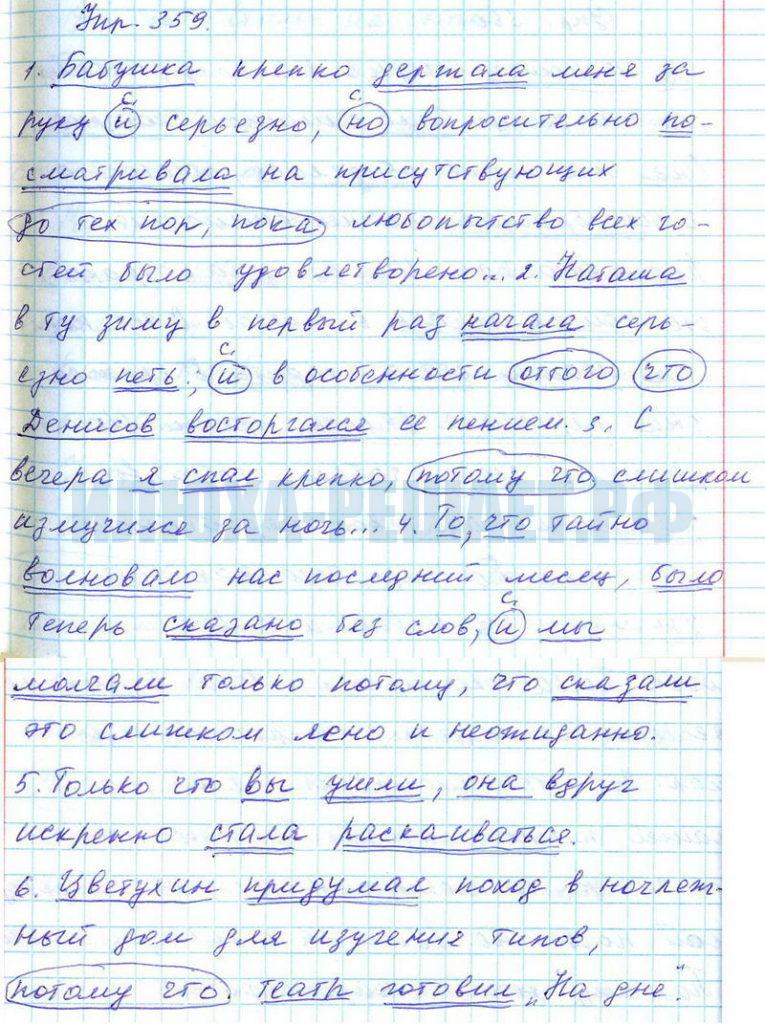 Упр. 359.
1. Бабушка крепко держала меня за
с.
руку и серьезно, но вопросительно по-
с.
сматривала на присутствующих
до тех пор, пока любопытство всех го-
стей было удовлетворено... 2. Наташа
в ту зиму в первый раз начала серь-
с.
езно петь, и в особенности оттого что
Денисов восторгался ее пением. 3. С
вечера я спал крепко, потому что слишком
измучился за ночь... 4. То, что тайно
волновало нас последний месяц, было
с.
теперь сказано без слов, и мы
молчали только потому, что сказали
это слишком ясно и неожиданно.
5. Только что вы ушли, она вдруг
искренно стала раскаиваться.
6. Цветухин придумал поход в ночлеж-
ный дом для изучения типов,
потому что театр готовил „На дне".